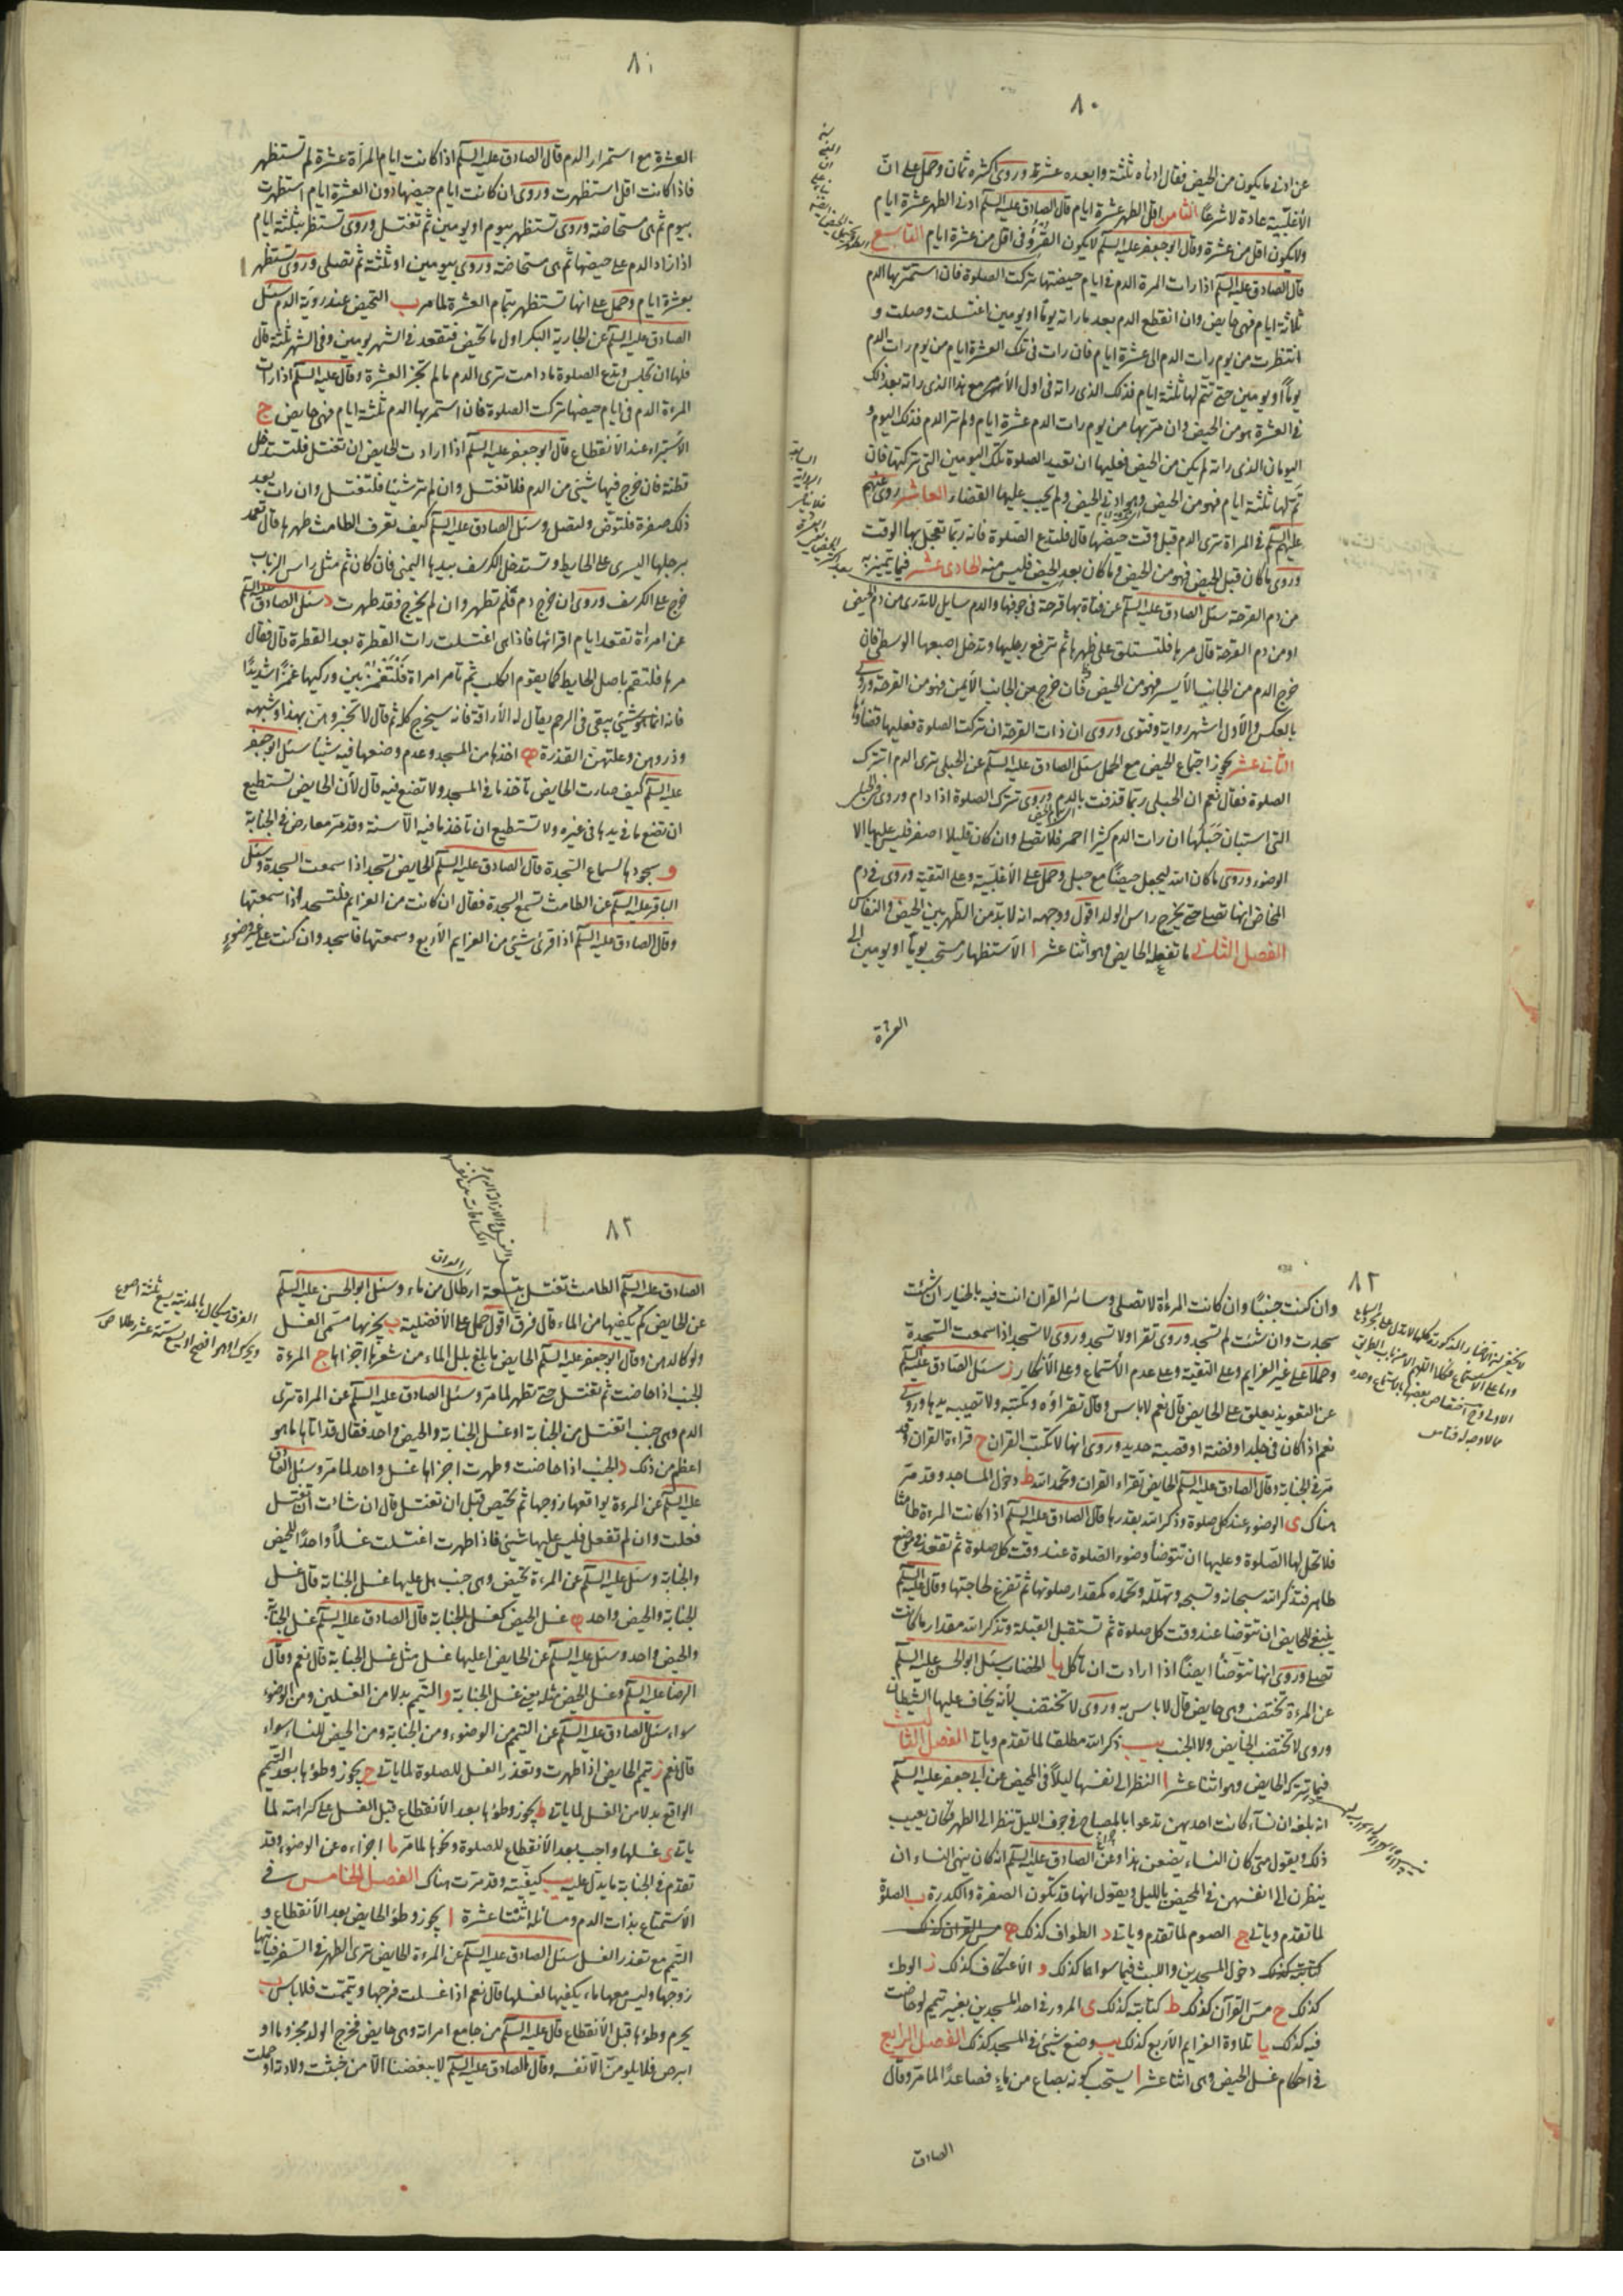 ٨٠
عن ادنى ما يكون من الحيض فقال ادناه ثلثة وابعده عشرة وروى اكثره ثمان وحمل على انّ
الأغلبيّة عادة لا شرعًا الثامن اقل الطهر عشرة ايام قال الصادق عليه السلم ادنى الطهر عشرة ايام
ولا يكون اقل من عشرة وقال ابو جعفر عليه السلم لا يكون القُرؤ في اقل من عشرة ايام التاسع
قال الصادق عليه السلم اذا رات المرة الدم في ايام حيضتها تركت الصلوة فان استمر بها الدم
ثلاثة ايام فهي حايض وان انقطع الدم بعد ما راته يومًا او يومين اغتسلت وصلت و
انتظرت من يوم رأت الدم الى عشرة ايام فان رات في تلك العشرة ايام من يوم رات الدم
يومًا او يومين حتى تتم لها ثلثة ايام فذلك الذى راته في اول الأمر مع هذا الذى راته بعد ذلك
في العشرة هو من الحيض وان مرّ بها من يوم رات الدم عشرة ايام ولم تر الدم فذلك اليوم و
اليومان الذى راته لم يكن من الحيض فعليها ان تعيد الصلوة تلك اليومين التى تركتها فان
تم لها ثلثة ايام فهو من الحيض وهو ادنى الحيض ولم يجب عليها القضاء العاشر روى عنهم
عليهم السلم في المراة ترى الدم قبل وقت حيضها قال فلتدع الصلوة فانه ربما تعجّل بها الوقت
وروى ما كان قبل الحيض فهو من الحيض وما كان بعد الحيض فليس منه الحادى عشر فيما يتميز به
من دم القرحة سئل الصادق عليه السلم عن فتاة بها قرحة في جوفها والدم سايل لا تدرى من دم الحيض
او من دم القرحة قال مرها فلتستلق على ظهرها ثم ترفع رجليها وتدخل اصبعها الوسطى فان
خرج الدم من الجانب الأيسر فهو من الحيض فان خرج من الجانب الأيمن فهو من القرحة وروى
بالعكس والأول اشهر رواية وفتوى وروى ان ذات القرحة ان تركت الصلوة فعليها قضاؤها
الثانى عشر يجوز اجتماع الحيض مع الحمل سئل الصادق عليه السلم عن الحبلى ترى الدم اتترك
الصلوة فقال نعم ان الحبلى ربّما قذفت بالدم وروى تترك الصلوة اذا دام وروى في الحبلى
التى استبان حَبَلها ان رات الدم كثيرا احمر فلا تصلى وان كان قليلا اصفر فليس عليها الا
الوضوء وروى ما كان الله ليجعل حيضًا مع حبل وحمل على الأغلبيّة وعلى التقية وروى في دم
المخاض انها تصلى حتى يخرج راس الولد اقول ووجهه انه لا بدّ من الطهر بين الحيض والنفاس
الفصل الثانى ما تفعله الحايض وهو اثنا عشر ا الأستظهار مستحب يومًا او يومين الى
العشرة
٨١
العشرة مع استمرار الدم قال الصادق عليه السلم اذا كانت ايام المرأة عشرة لم تستظهر
فاذا كانت اقل استظهرت وروى ان كانت ايام حيضها دون العشرة ايام استظهرت
بيوم ثم هى مستحاضة وروى تستظهر بيوم او يومين ثم تغتسل وروى تستظهر بثلثة ايام
اذا زاد الدم على حيضها ثم هى مستحاضة وروى بيومين او ثلثة ثم تصلى وروى تستظهر
بعشرة ايام وحمل على انها تستظهر بتمام العشرة لما مر ب التحيض عند روية الدم سئل
الصادق عليه السلم عن الجارية البكر اول ما تحيض فتقعد في الشهر يومين وفي الشهر ثلثة قال
فلها ان تجلس وتدع الصلوة ما دامت ترى الدم ما لم تجز العشرة وقال عليه السلم اذا رات
المرءة الدم في ايام حيضها تركت الصلوة فان استمر بها الدم ثلثة ايام فهى حايض ج
الأستبراء عند الأنقطاع قال ابو جعفر عليه السلم اذا ارادت الحايض ان تغتسل فلتستدخل
قطنة فان خرج فيها شئى من الدم فلا تغتسل وان لم تر شيئا فلتغتسل وان رات بعد
ذلك صفرة فلتوض ولتصل وسئل الصادق عليه السلم كيف تعرف الطامث طهرها قال تعمد
برجلها اليسرى على الحايط وتستدخل الكرسف بيدها اليمنى فان كان ثم مثل راس الذباب
خرج على الكرسف وروى ان خرج دم فلم تطهر وان لم يخرج فقد طهرت د سئل الصادق عليه السلم
عن امرءاة تقعد ايام اقرائها فاذا هى اغتسلت رات القطرة بعد القطرة قال فقال
مرها فلتقم باصل الحايط كما يقوم الكلب ثم تامر امراة فلتغمز بين وركيها غمزًا شديدًا
فانه انما هو شئى يبقى في الرحم يقال له الأراقة فانه سيخرج كله ثم قال لا تخبروهن بهذا وشبهه
وذروهن وعلتهن القذرة ه اخذها من المسجد وعدم وضعها فيه شيئا سئل ابو جعفر
عليه السلم كيف صارت الحايض تأخذ ما في المسجد ولا تضع فيه قال لأن الحايض تستطيع
ان تضع ما في يدها في غيره ولا تستطيع ان تأخذ ما فيه الا منه وقد مر معارض في الجنابة
و سجودها لسماع السّجدة قال الصادق عليه السلم الحايض تسجد اذا سمعت السجدة وسئل
الباقر عليه السلم عن الطامث تسمع السجدة فقال ان كانت من العزايم فلتسجد اذا سمعتها
وقال الصادق عليه السلم اذا قرئ شئى من العزايم الأربع وسمعتها فاسجد وان كنت على غير وضوءٍ
٨٢
وان كنت جنبًا وان كانت المرءاة لا تصلى وسائر القران انت فيه بالخيار ان شئت
سجدت وان شئت لم تسجد وروى تقرا ولا تسجد وروى لا تسجد اذا سمعت السّجدة
وحملا على غير العزايم وعلى التقية وعلى عدم الأستماع وعلى الأنكار ز سئل الصّادق عليه السلم
عن التعويذ يعلق على الحايض قال نعم لا باس وقال تقرؤه وتكتبه ولا تصيبه يدها وروى
نعم اذا كان في جلد او فضة او قصبة حديد وروى انها لا تكتب القران ح قراءة القران وقد
مرّ في الجنابة وقال الصادق عليه السلم الحايض تقراء القران وتحمد الله ط دخول المساجد وقد مرّ
هناك ى الوضوء عند كل صلوة وذكر الله بقدرها قال الصادق عليه السلم اذا كانت المرءة طامثا
فلا تحل لها الصّلوة وعليها ان تتوضأ وضوء الصّلوة عند وقت كل صلوة ثم تقعد في موضع
طاهر فتذكر الله سبحانه وتسبحه وتهلّله وتحمده كمقدار صلوتها ثم تفرغ لحاجتها وقال عليه السلم
ينبغى للحايض ان تتوضأ عند وقت كل صلوة ثم تستقبل القبلة وتذكر الله مقدار ما كانت
تصلى وروى انها تتوضأ ايضًا اذا ارادت ان تاكل يا الخضاب سئل ابو الحسن عليه السلم
عن المرءة تختضب وهى حايض قال لا باس به وروى لا تختضب لأنه يخاف عليها الشيطان
وروى لا تختضب الحايض ولا الجنب يب ذكر الله مطلقا لما تقدم وياتى الفصل الثالث
فيما تتركه الحايض وهو اثنا عشر ا النظر الى نفسها ليلاً في المحيض عن ابى جعفر عليه السلم
انه بلغه ان نساء كانت احديهن تدعوا بالمصباح في جوف الليل تنظر الى الطهر فكان يعيب
ذلك ويقول متى كان النساء يضعن هذا وعن الصادق عليه السلم انه كان ينهى النساء ان
ينظرن الى انفسهن في المحيض بالليل ويقول انها قد تكون الصفرة والكدرة ب الصلوة
لما تقدم وياتى ج الصوم لما تقدم وياتى د الطواف كذلك ه مس القران كذلك
كتابته كذلك دخول المسجدين واللبث فيما سواهما كذلك و الأعتكاف كذلك ز الوطئ
كذلك ح مسّ القرآن كذلك ط كتابته كذلك ى المرور في احد المسجدين بغير تيمم لو حاضت
فيه كذلك يا تلاوة العزايم الأربع كذلك يب وضع شئى في المسجد كذلك الفصل الرابع
في احكام غسل الحيض وهى اثنا عشر ا يستحب كونه بصاع من ماءٍ فصاعدًا لما مرّ وقال
الصادق
٨٣
الصادق عليه السلم الطامث تغتسل بتسعة ارطال من ماء وسئل ابو الحسن عليه السلم
عن الحايض كم يكفيها من الماء قال فرق اقول حمل على الأفضلية ب يجزيها مسمّى الغسل
ولو كالدهن وقال ابو جعفر عليه السلم الحايض ما بلغ بلل الماء من شعرها اجزاها ج المرءة
الجنب اذا حاضت ثم تغتسل حتى تطهر لما مر وسئل الصادق عليه السلم عن المراة ترى
الدم وهى جنب اتغتسل من الجنابة او غسل الجنابة والحيض واحد فقال قد اتاها ما هو
اعظم من ذلك د الجنب اذا حاضت وطهرت اجزاها غسل واحد لما مر وسئل الصادق
عليه السلم عن المرءة يواقعها زوجها ثم تحيض قبل ان تغتسل قال ان شائت ان تغتسل
فعلت وان لم تفعل فليس عليها شئى فاذا طهرت اغتسلت غسلًا واحدًا للحيض
والجنابة وسئل عليه السلم عن المرءة تحيض وهى جنب هل عليها غسل الجنابة قال غسل
الجنابة والحيض واحد ه غسل الحيض كغسل الجنابة قال الصادق عليه السلم غسل الجنابة
والحيض واحد وسئل عليه السلم عن الحايض اعليها غسل مثل غسل الجنابة قال نعم وقال
الرضا عليه السلم وغسل الحيض مثله يعنى غسل الجنابة و التيمم بدلا من الغسلين ومن الوضوء
سواء سئل الصادق عليه السلم عن التيمم من الوضوء ومن الجنابة ومن الحيض للنساء سواء
قال نعم ز تيمم الحايض اذا طهرت وتعذر الغسل للصلوة لما ياتى ح يجوز وطؤها بعد التيمم
الواقع بدلا من الغسل لما ياتى ط يجوز وطؤها بعد الأنقطاع قبل الغسل على كراهته لما
ياتى ى غسلها واجب بعد الأنقطاع للصلوة ونحوها لما مر يا اجزاءه عن الوضوء وقد
تقدم في الجنابة ما يدل عليه يب كيفيّته وقد مرت هناك الفصل الخامس في
الأستمتاع بذات الدم ومسائله اثنتا عشرة ا يجوز وطؤ الحايض بعد الأنقطاع و
التيمم مع تعذر الغسل سئل الصادق عليه السلم عن المرءة الحايض ترى الطهر في السّفر فياتيها
زوجها وليس معها ماء يكفيها لغسلها قال نعم اذا غسلت فرجها وتيممت فلا باس ب
يحرم وطؤها قبل الأنقطاع قال عليه السلم من جامع امراته وهى حايض فخرج الولد مجزوما او
ابرص فلا يلومنّ الّا نفسه وقال الصادق عليه السلم لا يبغضنا الّا من خبثت ولادته او حملت